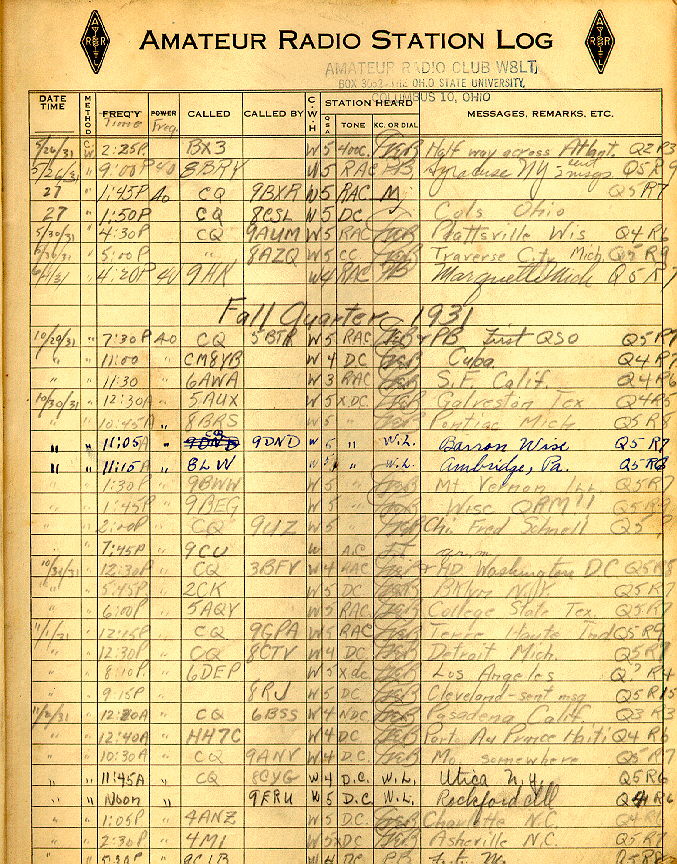 AMATEUR RADIO STATION LOG
AMATEUR RADIO CLUB W8LT,
BOX 3052-THE OHIO STATE UNIVERSITY,
COLUMBUS 10, OHIO
DATE TIME METHOD FREQ'Y Time POWER Freq. CALLED CALLED BY C.W.H STATION HEARD QSA TONE KC. OR DIAL MESSAGES, REMARKS, ETC.
5/26/31 C.W. 2:25P BX3 W 5 Half way across Atlant. Q2 R3
5/26/31 " 9:00P 40 8BRY W 5 RAC Syracuse NY - sent 3 msgs Q5 R9
27 " 1:45P 40 CQ 9BXR W 5 RAC M Q5 R7
27 " 1:50P CQ 8CSL W 5 DC Cols Ohio
5/30/31 " 4:30P CQ 9AUM W 5 RAC Plattsville Wis Q4 R6
5/30/31 " 5:00P " 8AZQ W 5 CC Traverse City Mich. Q5 R9
" 4:20P 40 9HK W 4 RAC Marquette Mich Q5 R7
Fall Quarter 1931
10/29/31 " 7:30P 40 CQ 5BTR W 5 RAC & PB First QSO Q5 R7
" " 11:00 " CM8YB W 4 DC Cuba Q4 R7
" " 11:30 " 6AWA W 3 RAC S.F. Calif. Q4 R6
10/30/31 " 12:30A " 5AUX W 5 XDC Galveston Tex Q4 R5
" " 10:45A " 8BRS W 5 " Pontiac Mich Q5 R8
" " 11:05A " CQ 9DND W 5 " W.L. Barron Wisc Q5 R7
" " 11:15A " 8LW W 5 " W.L. Ambridge, Pa. Q5 R8
" " 1:30P 9BWW W 5 " Mt Vernon Ill Q5 R7
" " 1:45P 9BEG W 5 " Wisc QRM!! Q5 R9
" " 2:00P CQ 9UZ W 5 " Chi Fred Schnell Q5
" 7:45P 9CU W AC
10/31/31 " 12:30P CQ 3BFV W 4 RAC Washington D.C Q5 R8
" " 5:45P 2CK W 5 DC Bklyn Q5 R7
" " 6:00P 5AQY W 5 RAC College State Tex. Q5 R7
11/1/31 " 12:15P CQ 9GPA W 5 RAC Terre Haute Ind Q5 R9
" " 12:30P CQ 8CTV W 4 DC Detroit Mich. Q5 R8
" " 8:10P 6DEP W 5 Xdc Los Angeles Q? R4
" " 9:15P 8RJ W 5 DC Cleveland-sent msg Q5 R15
11/2/31 " 12:20A CQ 6BSS W 4 NDC Pasadena Calif. Q3 R3
" " 12:40A HH7C W 4 DC Port Au Prance Haiti Q4 R6
" " 10:30A CQ 9ANV W 4 D.C. Mo. somewhere Q5 R7
" " 11:45A CQ 8CYG W 4 D.C. W.L. Utica N.Y. Q5 R6
" " Noon " 9FRU W 5 D.C. W.L. Rockford Ill Q4 R6
" " 1:05P 4ANZ W 5 DC Charlotte N.C. Q4
" " 2:30P 4MI W 5 XDC Asheville N.C. Q5 R7
" " 5:30P W 4 DC PB